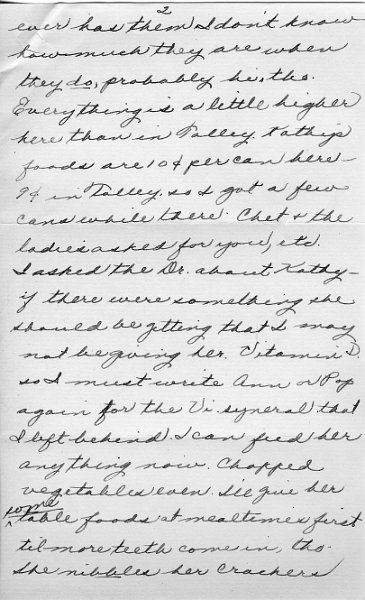 2
ever has them I don't know
how much they are when
they do, probably hi, tho.
Everything is a little higher
here than in Talley. Kathy's
foods are 10¢ per can here -
9¢ in Talley, so I got a few
cans while there. Chet & the
ladies asked for you, etc.
I asked the Dr. about Kathy -
if there were something she
should be getting that I may
not be giving her. Vitamin D
so I must write Ann or Pop
again for the Vi-syneral that
I left behind. I can feed her
anything now. Chopped
vegetables even. I'll give her
some
table foods at mealtimes first
til more teeth come in, tho.
She nibbles her crackers